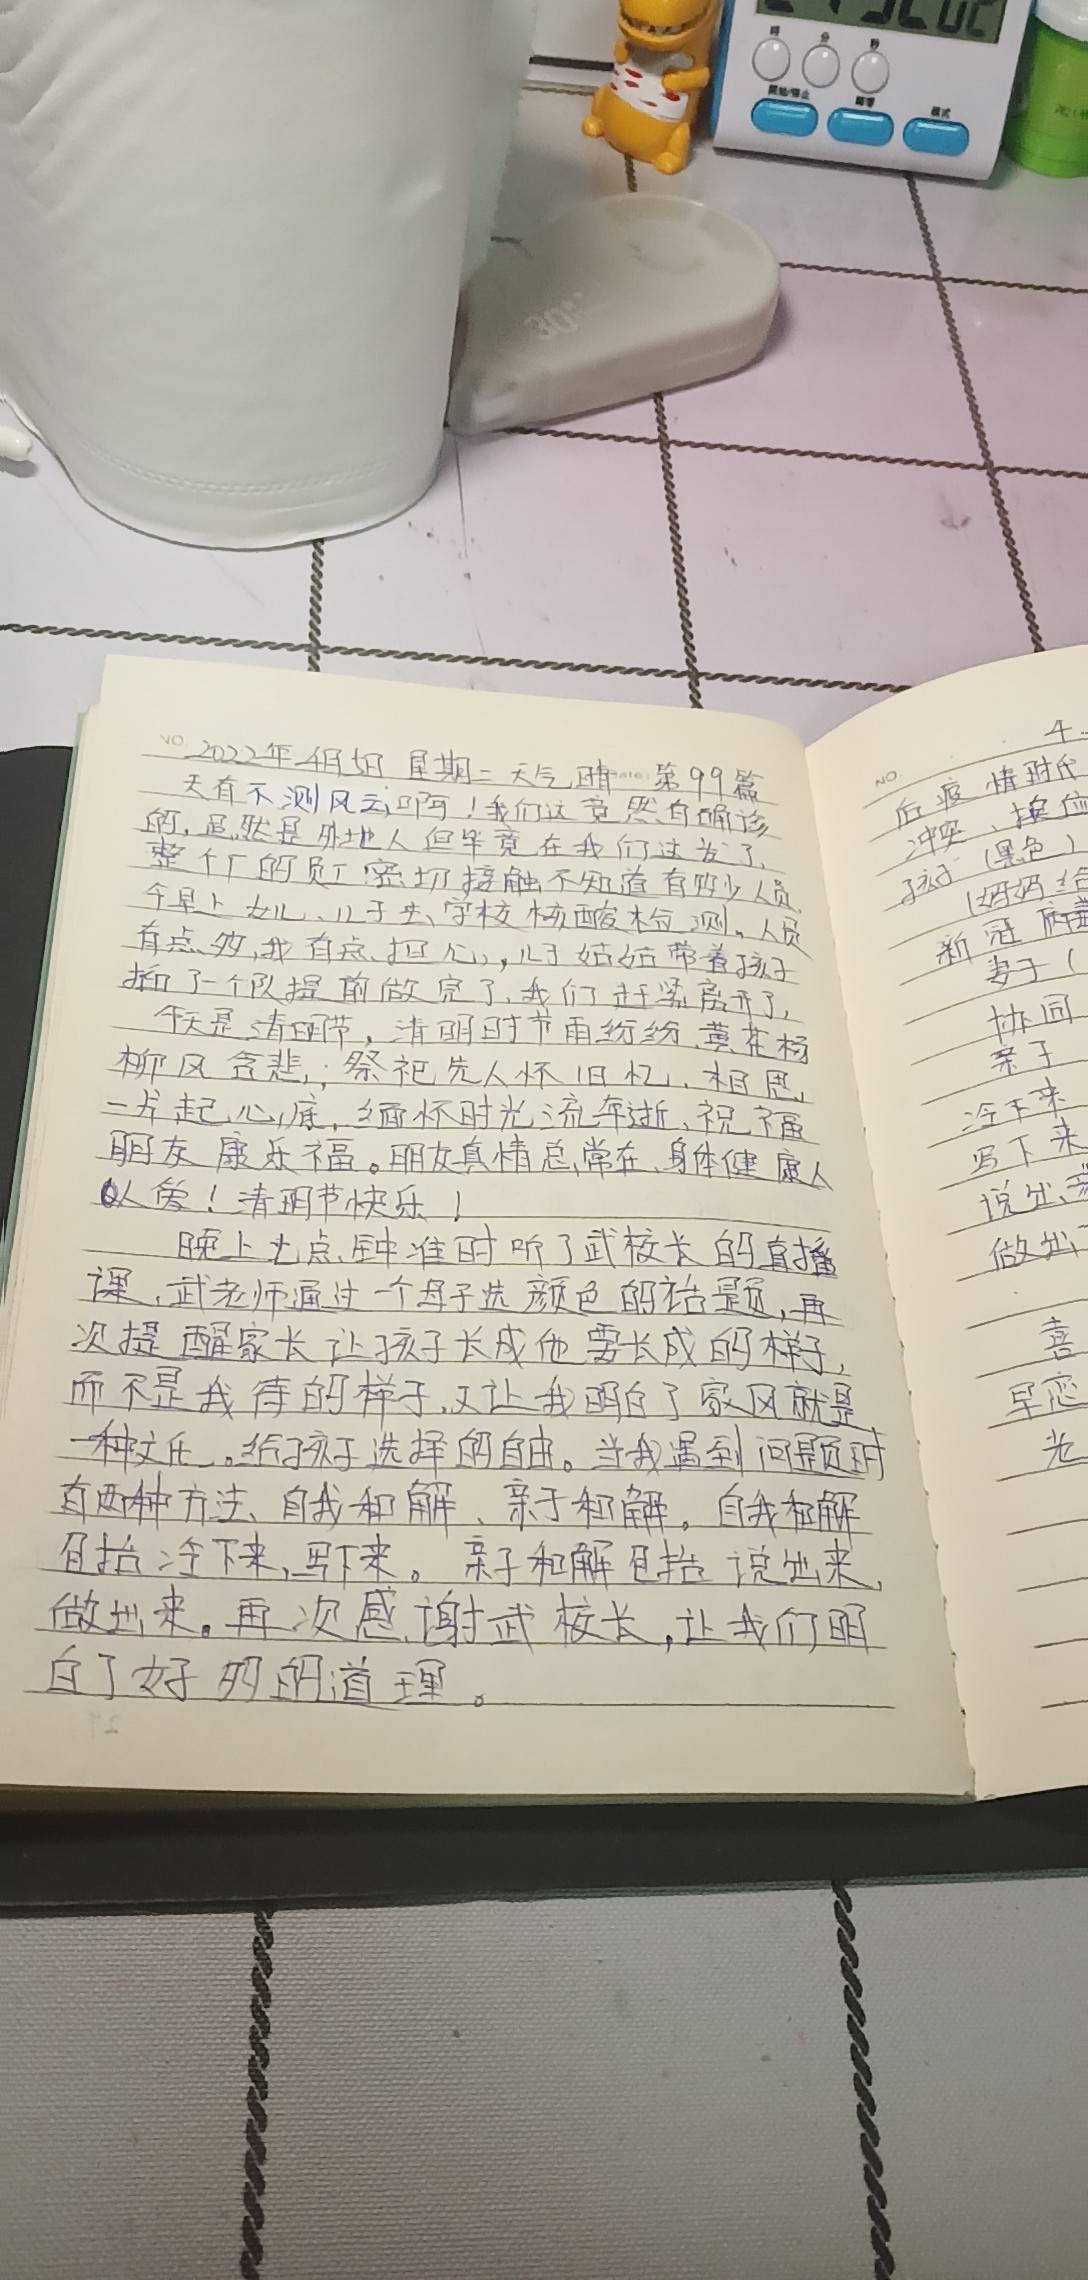 時 分 秒
開始/停止 歸零 模式
30
NO.
2022年4月5日 星期二 天气晴 第99篇
天有不测风云啊!我们这竟然有确诊
的,虽然是外地人但毕竟在我们这发了,
整个厂的员工密切接触不知道有多少人员
今早上女儿、儿子去学校核酸检测。人员
有点多,我有点担心,儿子姑姑带着孩子
插了一个队提前做完了,我们赶紧离开了,
今天是清明节,清明时节雨纷纷,黄花杨
柳风含悲,祭祀先人怀旧忆,相思
一片起心底,缅怀时光流年逝、祝福
朋友康乐福。朋友真情总常在、身体健康人
人爱!清明节快乐!
晚上七点钟准时听了武校长的直播
课,武老师通过一个母子选颜色的话题,再
次提醒家长让孩子长成他要长成的样子,
而不是我待的样子,又让我明白了家风就是
一种文化。给孩子选择的自由。当我遇到问题时
有两种方法、自我和解、亲子和解。自我和解
包括冷下来,写下来。亲子和解包括说出来,
做出来。再次感谢武校长,让我们明
白了好多的道理。
NO.
4
后疫情时代
冲突、换位
孩子(黑色)
(妈妈给
新冠
妻子(
协同
亲子
冷下来
写下来
说出
做出
喜
早恋
光